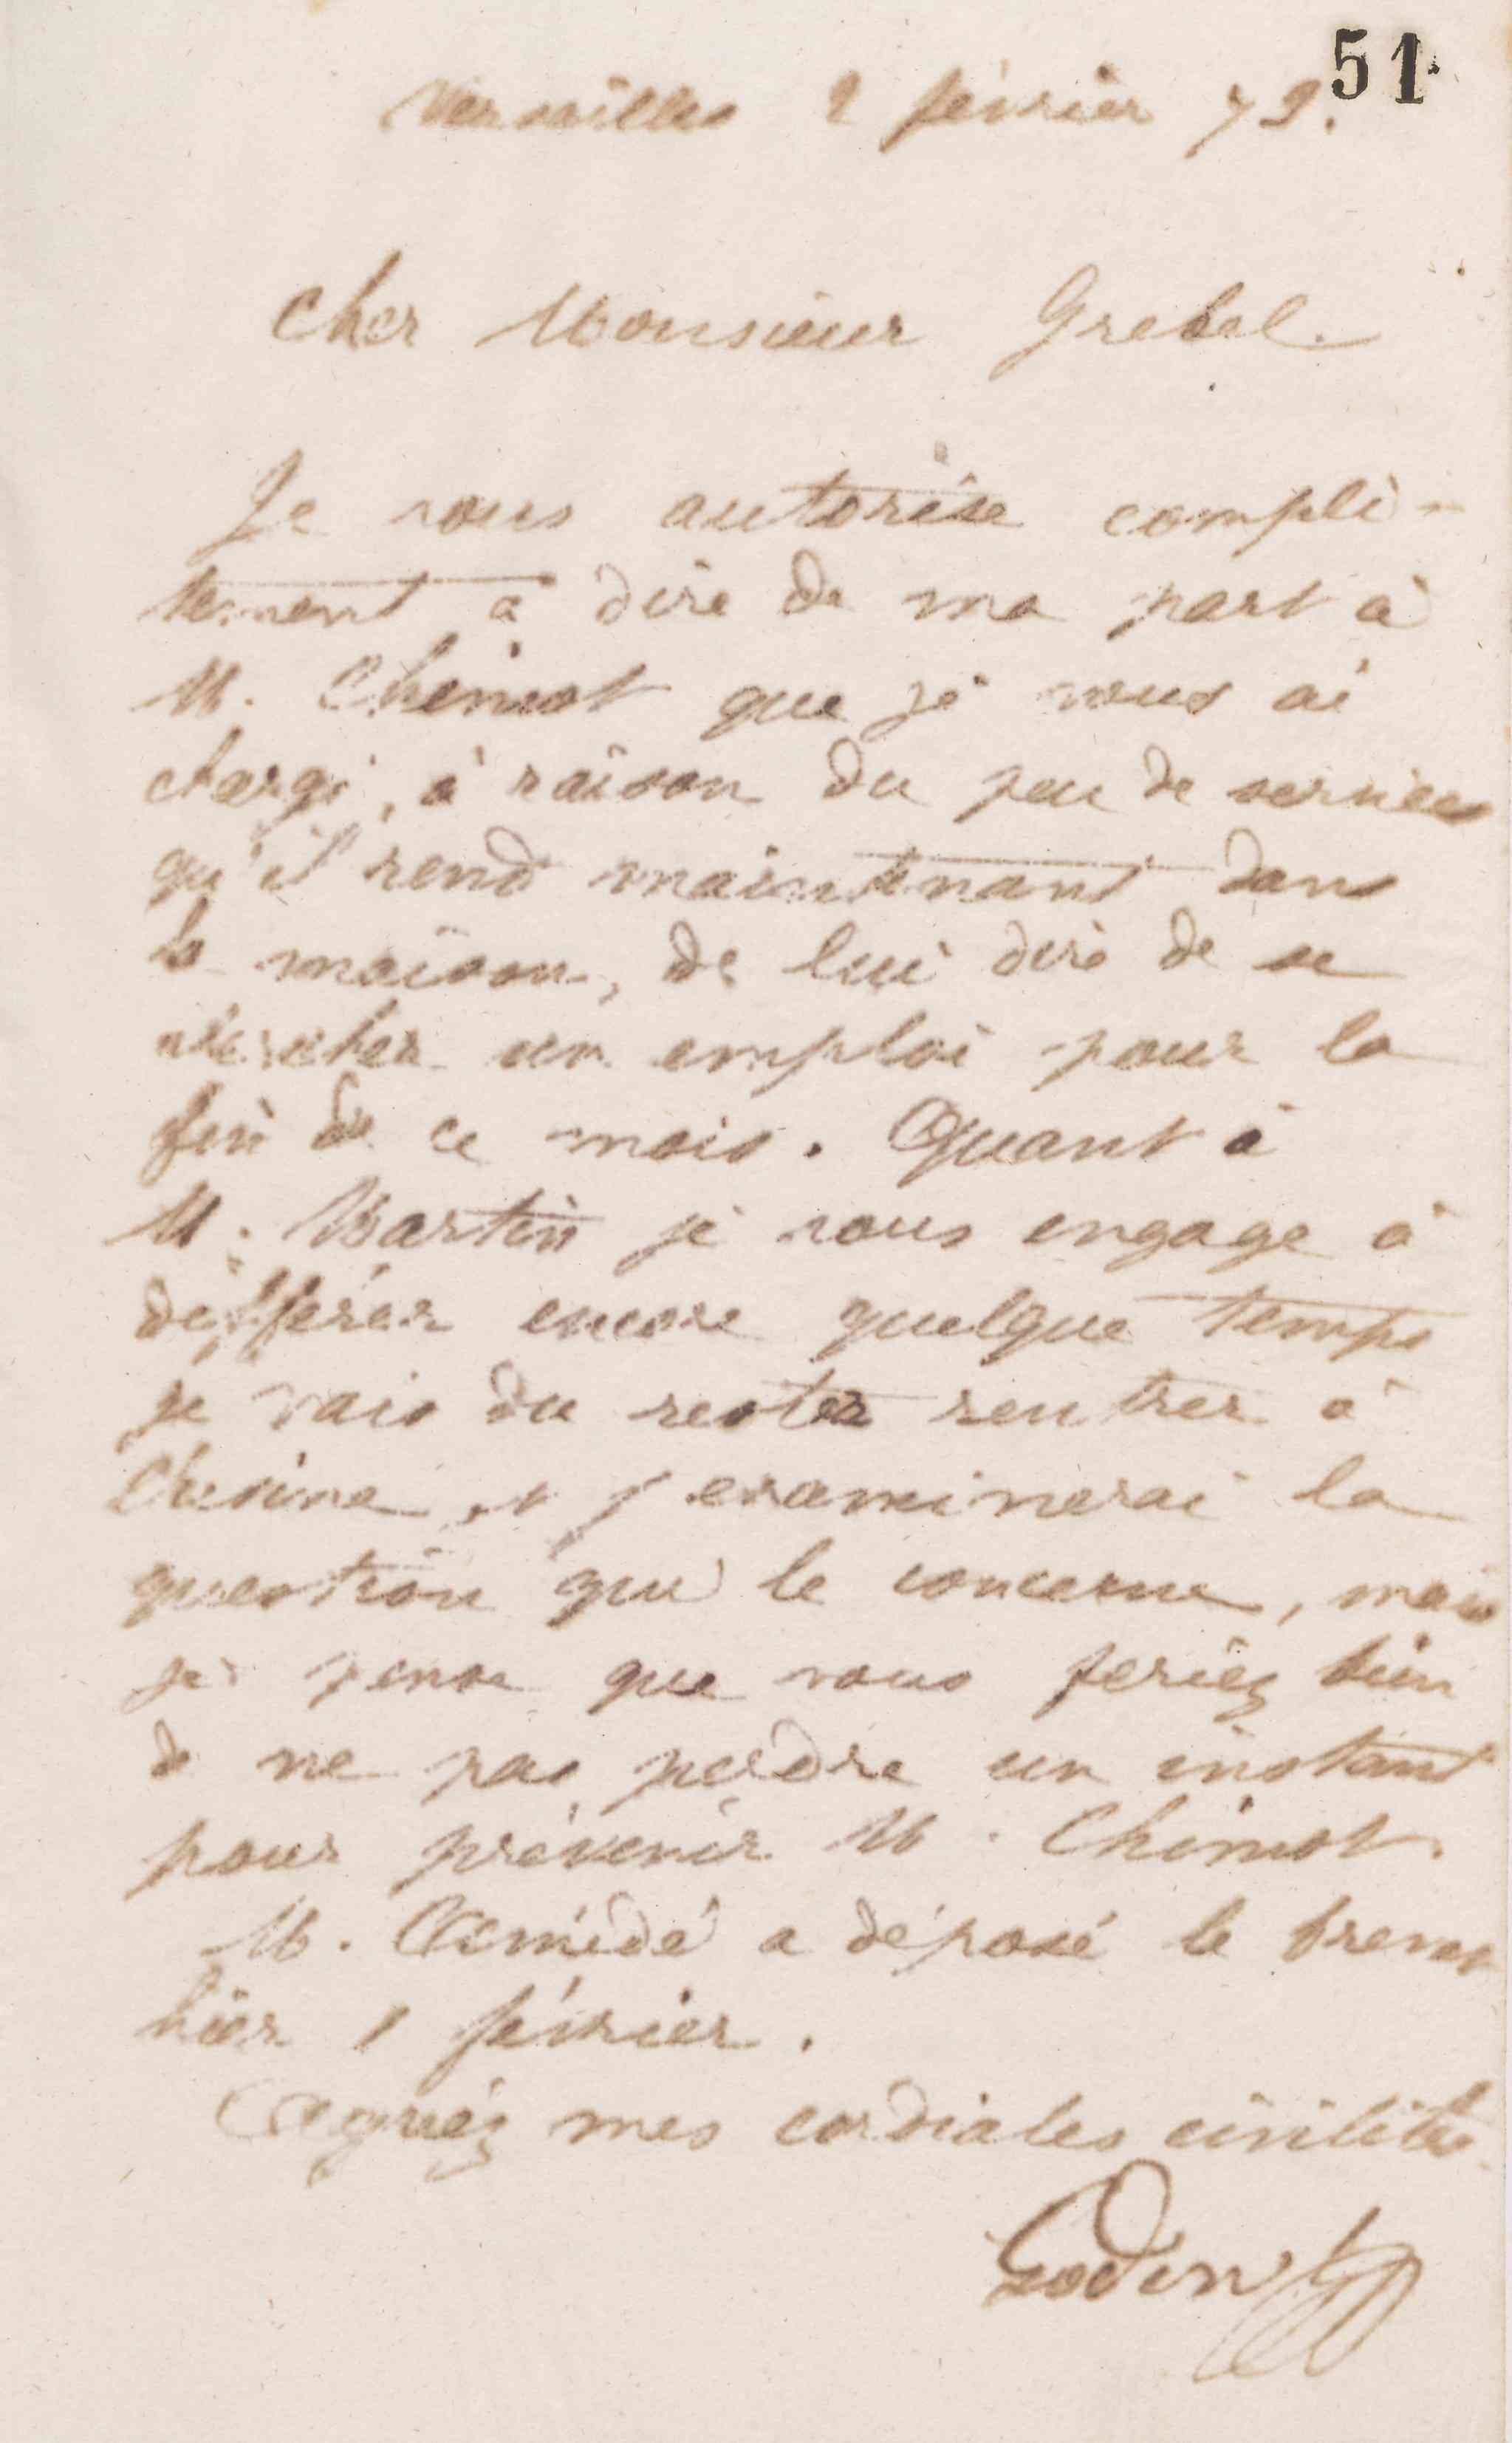 51
Versailles 2 février 79.
Cher Monsieur Grebel.
Je vous autorise complè-
tement à dire de ma part à
M. Chimot que je vous ai
chargé, à raison du peu de services
qu'il rend maintenant dans
la maison, de lui dire de se
chercher un emploi pour la
fin de ce mois. Quant à
M. Martin je vous engage à
différer encore quelque temps
je vais du rester rentrer à
et j'examinerai la
question qui le concerne, mais
je pense que vous feriez bien
de ne pas perdre un instant
pour prévenir M. Chimot.
M. Amédé a déposé le brevet
hier 1 février.
Agréez mes cordiales civilités.
Godin